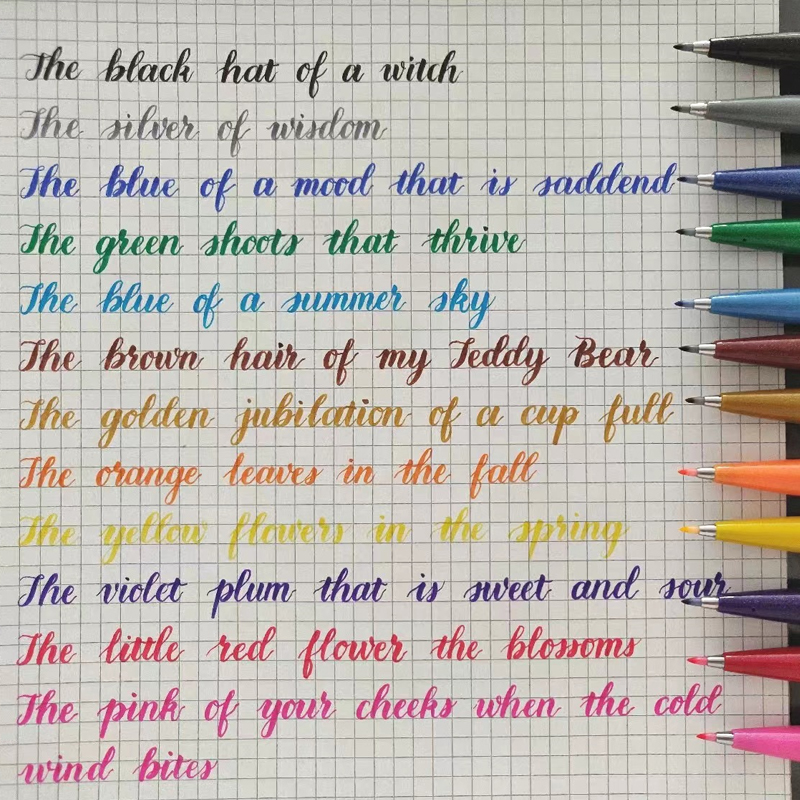 The black hat of a witch
The silver of wisdom
The blue of a mood that is saddend
The green shoots that thrive
The blue of a summer sky
The brown hair of my Teddy Bear
The golden jubilation of a cup full
The orange leaves in the fall
The yellow flowers in the spring
The violet plum that is sweet and sour
The little red flower the blossoms
The pink of your cheeks when the cold
wind bites